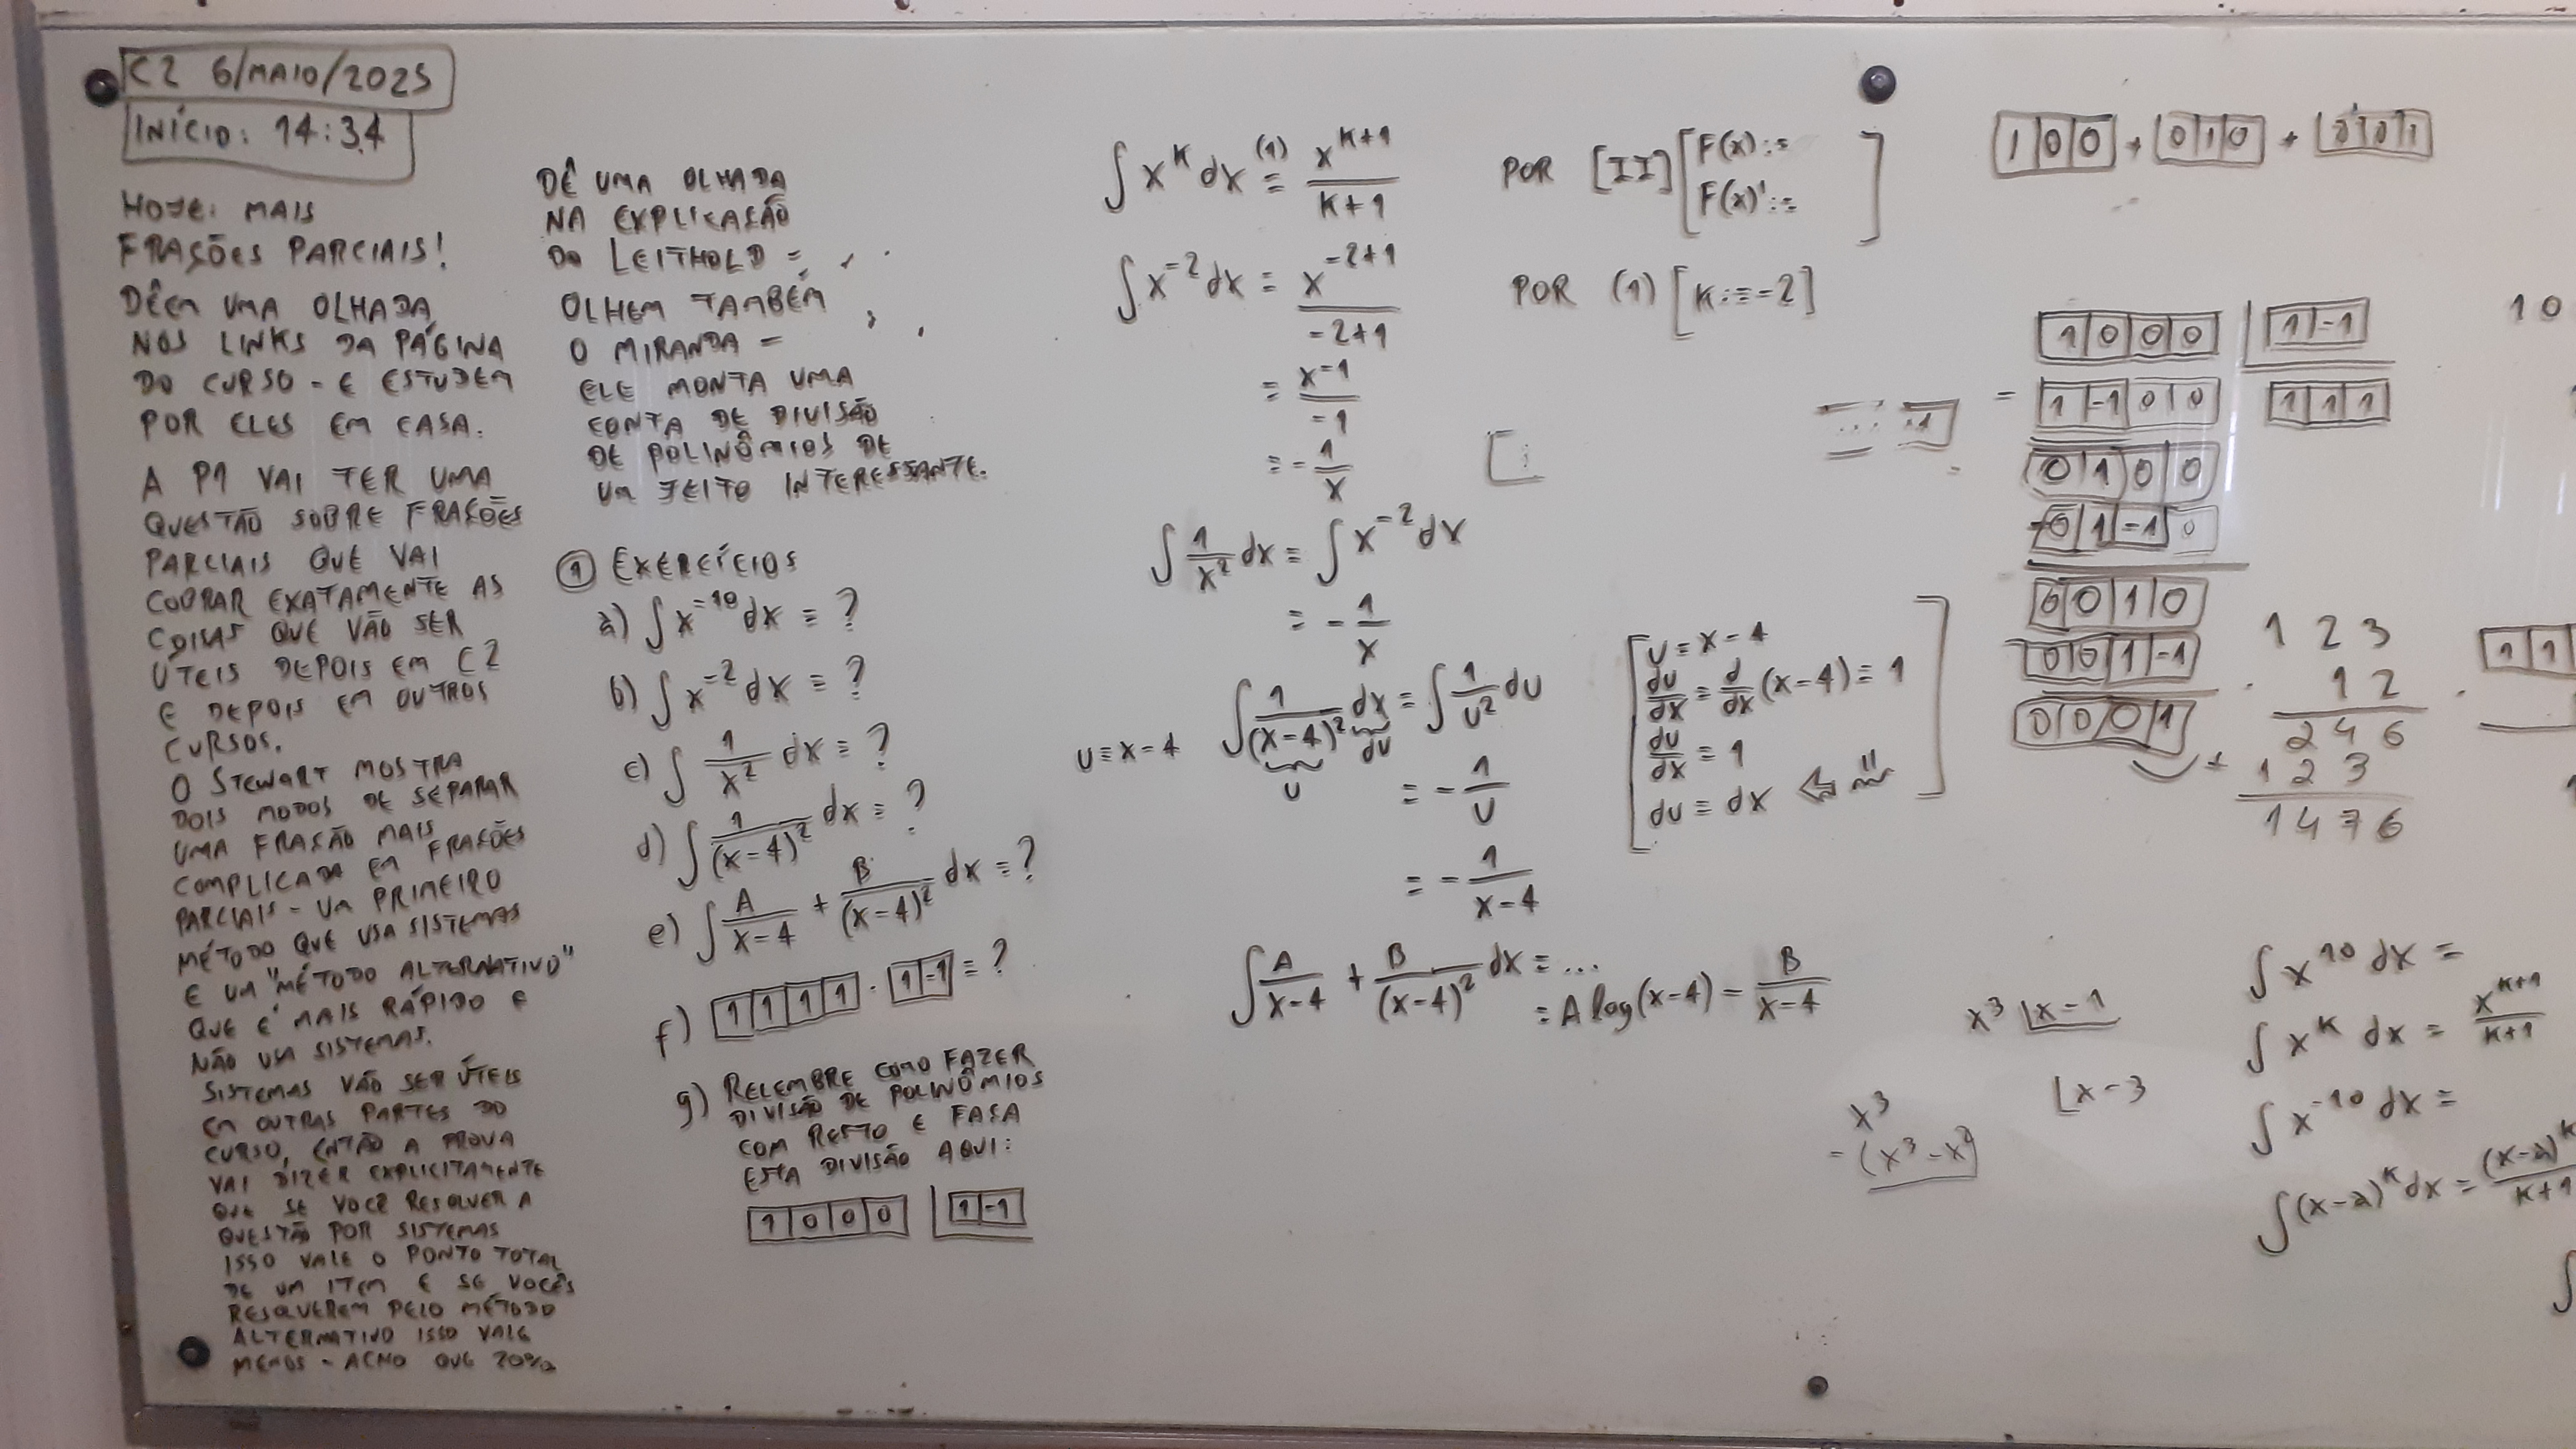 C2 6/MAIO/2025
INÍCIO: 14:34
HOJE: MAIS
FRAÇÕES PARCIAIS!
DÊEM UMA OLHADA
NOS LINKS DA PÁGINA
DO CURSO - E ESTUDEM
POR ELES EM CASA.
A P1 VAI TER UMA
QUESTÃO SOBRE FRAÇÕES
PARCIAIS QUE VAI
COBRAR EXATAMENTE AS
COISAS QUE VÃO SER
ÚTEIS DEPOIS EM C2
E DEPOIS EM OUTROS
CURSOS.
O STEWART MOSTRA
DOIS MODOS DE SEPARAR
UMA FRAÇÃO MAIS
COMPLICADA EM FRAÇÕES
PARCIAIS - UM PRIMEIRO
MÉTODO QUE USA SISTEMAS
E UM "MÉTODO ALTERNATIVO"
QUE É MAIS RÁPIDO E
NÃO USA SISTEMAS.
SISTEMAS VÃO SER ÚTEIS
EM OUTRAS PARTES DO
CURSO, ENTÃO A PROVA
VAI DIZER EXPLICITAMENTE
QUE SE VOCÊ RESOLVER A
QUESTÃO POR SISTEMAS
ISSO VALE O PONTO TOTAL
DE UM ITEM E SE VOCÊS
RESOLVEREM PELO MÉTODO
ALTERNATIVO ISSO VALE
MENOS - ACHO QUE 20%
DÊ UMA OLHADA
NA EXPLICAÇÃO
DO LEITHOLD -
OLHEM TAMBÉM
O MIRANDA -
ELE MONTA UMA
CONTA DE DIVISÃO
DE POLINÔMIOS DE
UM JEITO INTERESSANTE.
① EXERCÍCIOS
a) ∫ x^-10 dx = ?
b) ∫ x^-2 dx = ?
c) ∫ 1/x^2 dx = ?
d) ∫ 1/(x-4)^2 dx = ?
e) ∫ A/(x-4) + B/(x-4)^2 dx = ?
f) |1|1|1|1| · |1|-1| = ?
g) RELEMBRE COMO FAZER
DIVISÃO DE POLINÔMIOS
COM RESTO E FAÇA
ESTA DIVISÃO AQUI:
|1|0|0|0| |1|-1|
∫ x^k dx (1)= x^(k+1)/(k+1) POR [II] [F(x) := F(x)' := ]
∫ x^-2 dx = x^(-2+1)/(-2+1) POR (1) [k := -2]
= x^-1/-1
= -1/x
∫ 1/x^2 dx = ∫ x^-2 dx
= -1/x
u = x-4 ∫ 1/(x-4)^2 dx = ∫ 1/u^2 du
u du
= -1/u
= -1/(x-4)
u = x-4
du/dx = d/dx (x-4) = 1
du/dx = 1
du = dx ⇐
∫ A/(x-4) + B/(x-4)^2 dx = ...
= A log(x-4) - B/(x-4)
|1|0|0| + |0|1|0| + |0|0|1|
|1|0|0|0| |1|-1|
- |1|-1|0|0| |1|1|1|
|0|1|0|0|
- |0|1|-1|0|
|0|0|1|0|
- |0|0|1|-1|
|0|0|0|1|
1 2 3
· 1 2
2 4 6
+ 1 2 3
1 4 7 6
1 0
|1|1|
x^3 |x-1
|x-3
x^3
- (x^3 - x^2)
∫ x^10 dx =
∫ x^k dx = x^(k+1)/(k+1)
∫ x^-10 dx =
∫ (x-a)^k dx = (x-a)^k /k+1
∫